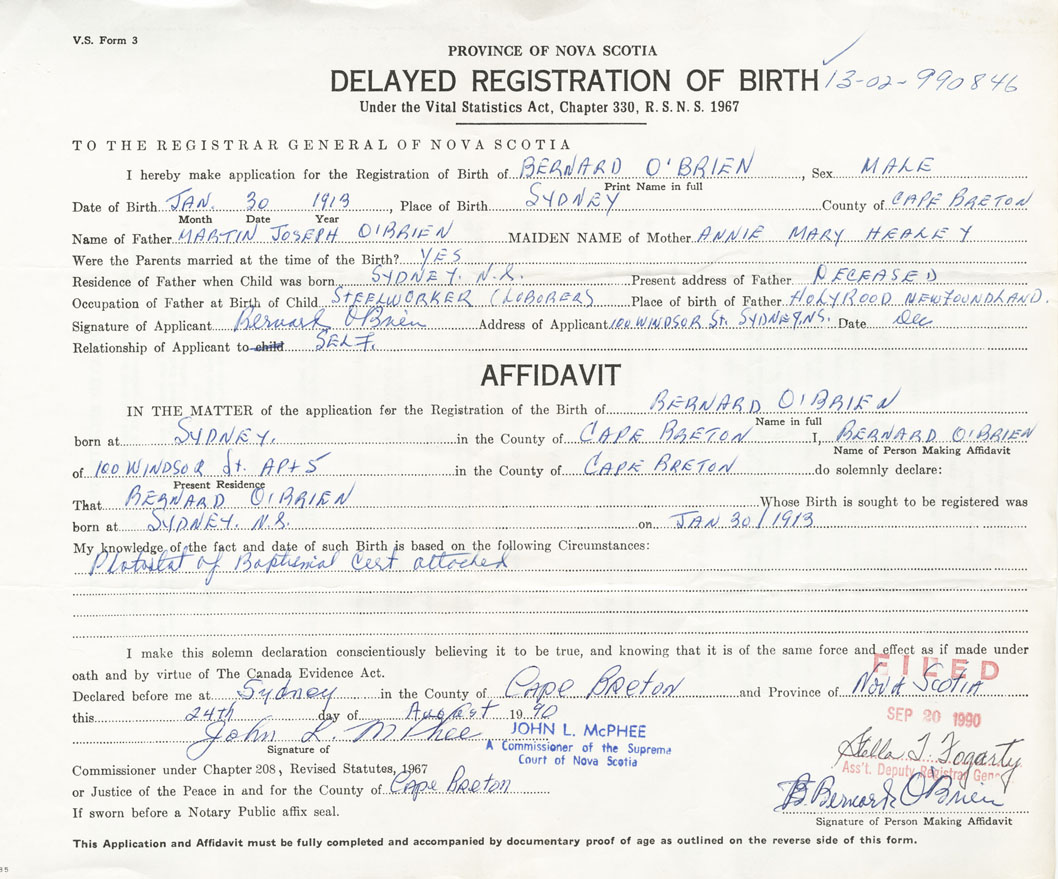 V.S. Form 3
PROVINCE OF NOVA SCOTIA
DELAYED REGISTRATION OF BIRTH 13-02-990846
Under the Vital Statistics Act, Chapter 330, R.S.N.S. 1967
TO THE REGISTRAR GENERAL OF NOVA SCOTIA
I hereby make application for the Registration of Birth of BERNARD O'BRIEN, Sex MALE
Print Name in full
Date of Birth JAN. 30 1913, Place of Birth SYDNEY County of CAPE BRETON
Month Date Year
Name of Father MARTIN JOSEPH O'BRIEN MAIDEN NAME of Mother ANNIE MARY HEALEY
Were the Parents married at the time of the Birth? YES
Residence of Father when Child was born SYDNEY. N.S. Present address of Father DECEASED
Occupation of Father at Birth of Child STEELWORKER (LOBORER) Place of birth of Father HOLYROOD NEWFOUNDLAND.
Signature of Applicant Bernard O'Brien Address of Applicant 100 WINDSOR St. SYDNEY, N.S. Date Dec
Relationship of Applicant to child SELF.
AFFIDAVIT
IN THE MATTER of the application for the Registration of the Birth of BERNARD O'BRIEN
Name in full
born at SYDNEY. in the County of CAPE BRETON I, BERNARD O'BRIEN
Name of Person Making Affidavit
of 100 WINDSOR St. APt 5 in the County of CAPE BRETON do solemnly declare:
Present Residence
That BERNARD O'BRIEN Whose Birth is sought to be registered was
born at SYDNEY. N.S. on JAN 30/1913
My knowledge of the fact and date of such Birth is based on the following Circumstances:
Photostat of Baptismal Cert attached
I make this solemn declaration conscientiously believing it to be true, and knowing that it is of the same force and effect as if made under
oath and by virtue of The Canada Evidence Act.
FILED
Declared before me at Sydney in the County of Cape Breton and Province of Nova Scotia
this 24th day of August 1990
SEP 20 1990
John L. McPhee
JOHN L. McPHEE
A Commissioner of the Supreme
Court of Nova Scotia
Signature of
Stella T. Fogarty
Ass't. Deputy Registrar Gen
Commissioner under Chapter 208, Revised Statutes, 1967
or Justice of the Peace in and for the County of Cape Breton
B. Bernard O'Brien
If sworn before a Notary Public affix seal.
Signature of Person Making Affidavit
This Application and Affidavit must be fully completed and accompanied by documentary proof of age as outlined on the reverse side of this form.